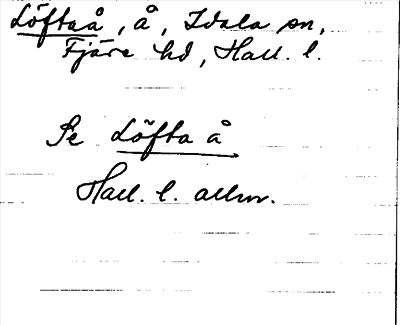 Löftaå, å, Idala sn,
Fjäre hd, Hall. l.
Se Löfta å
Hall. l. allm.